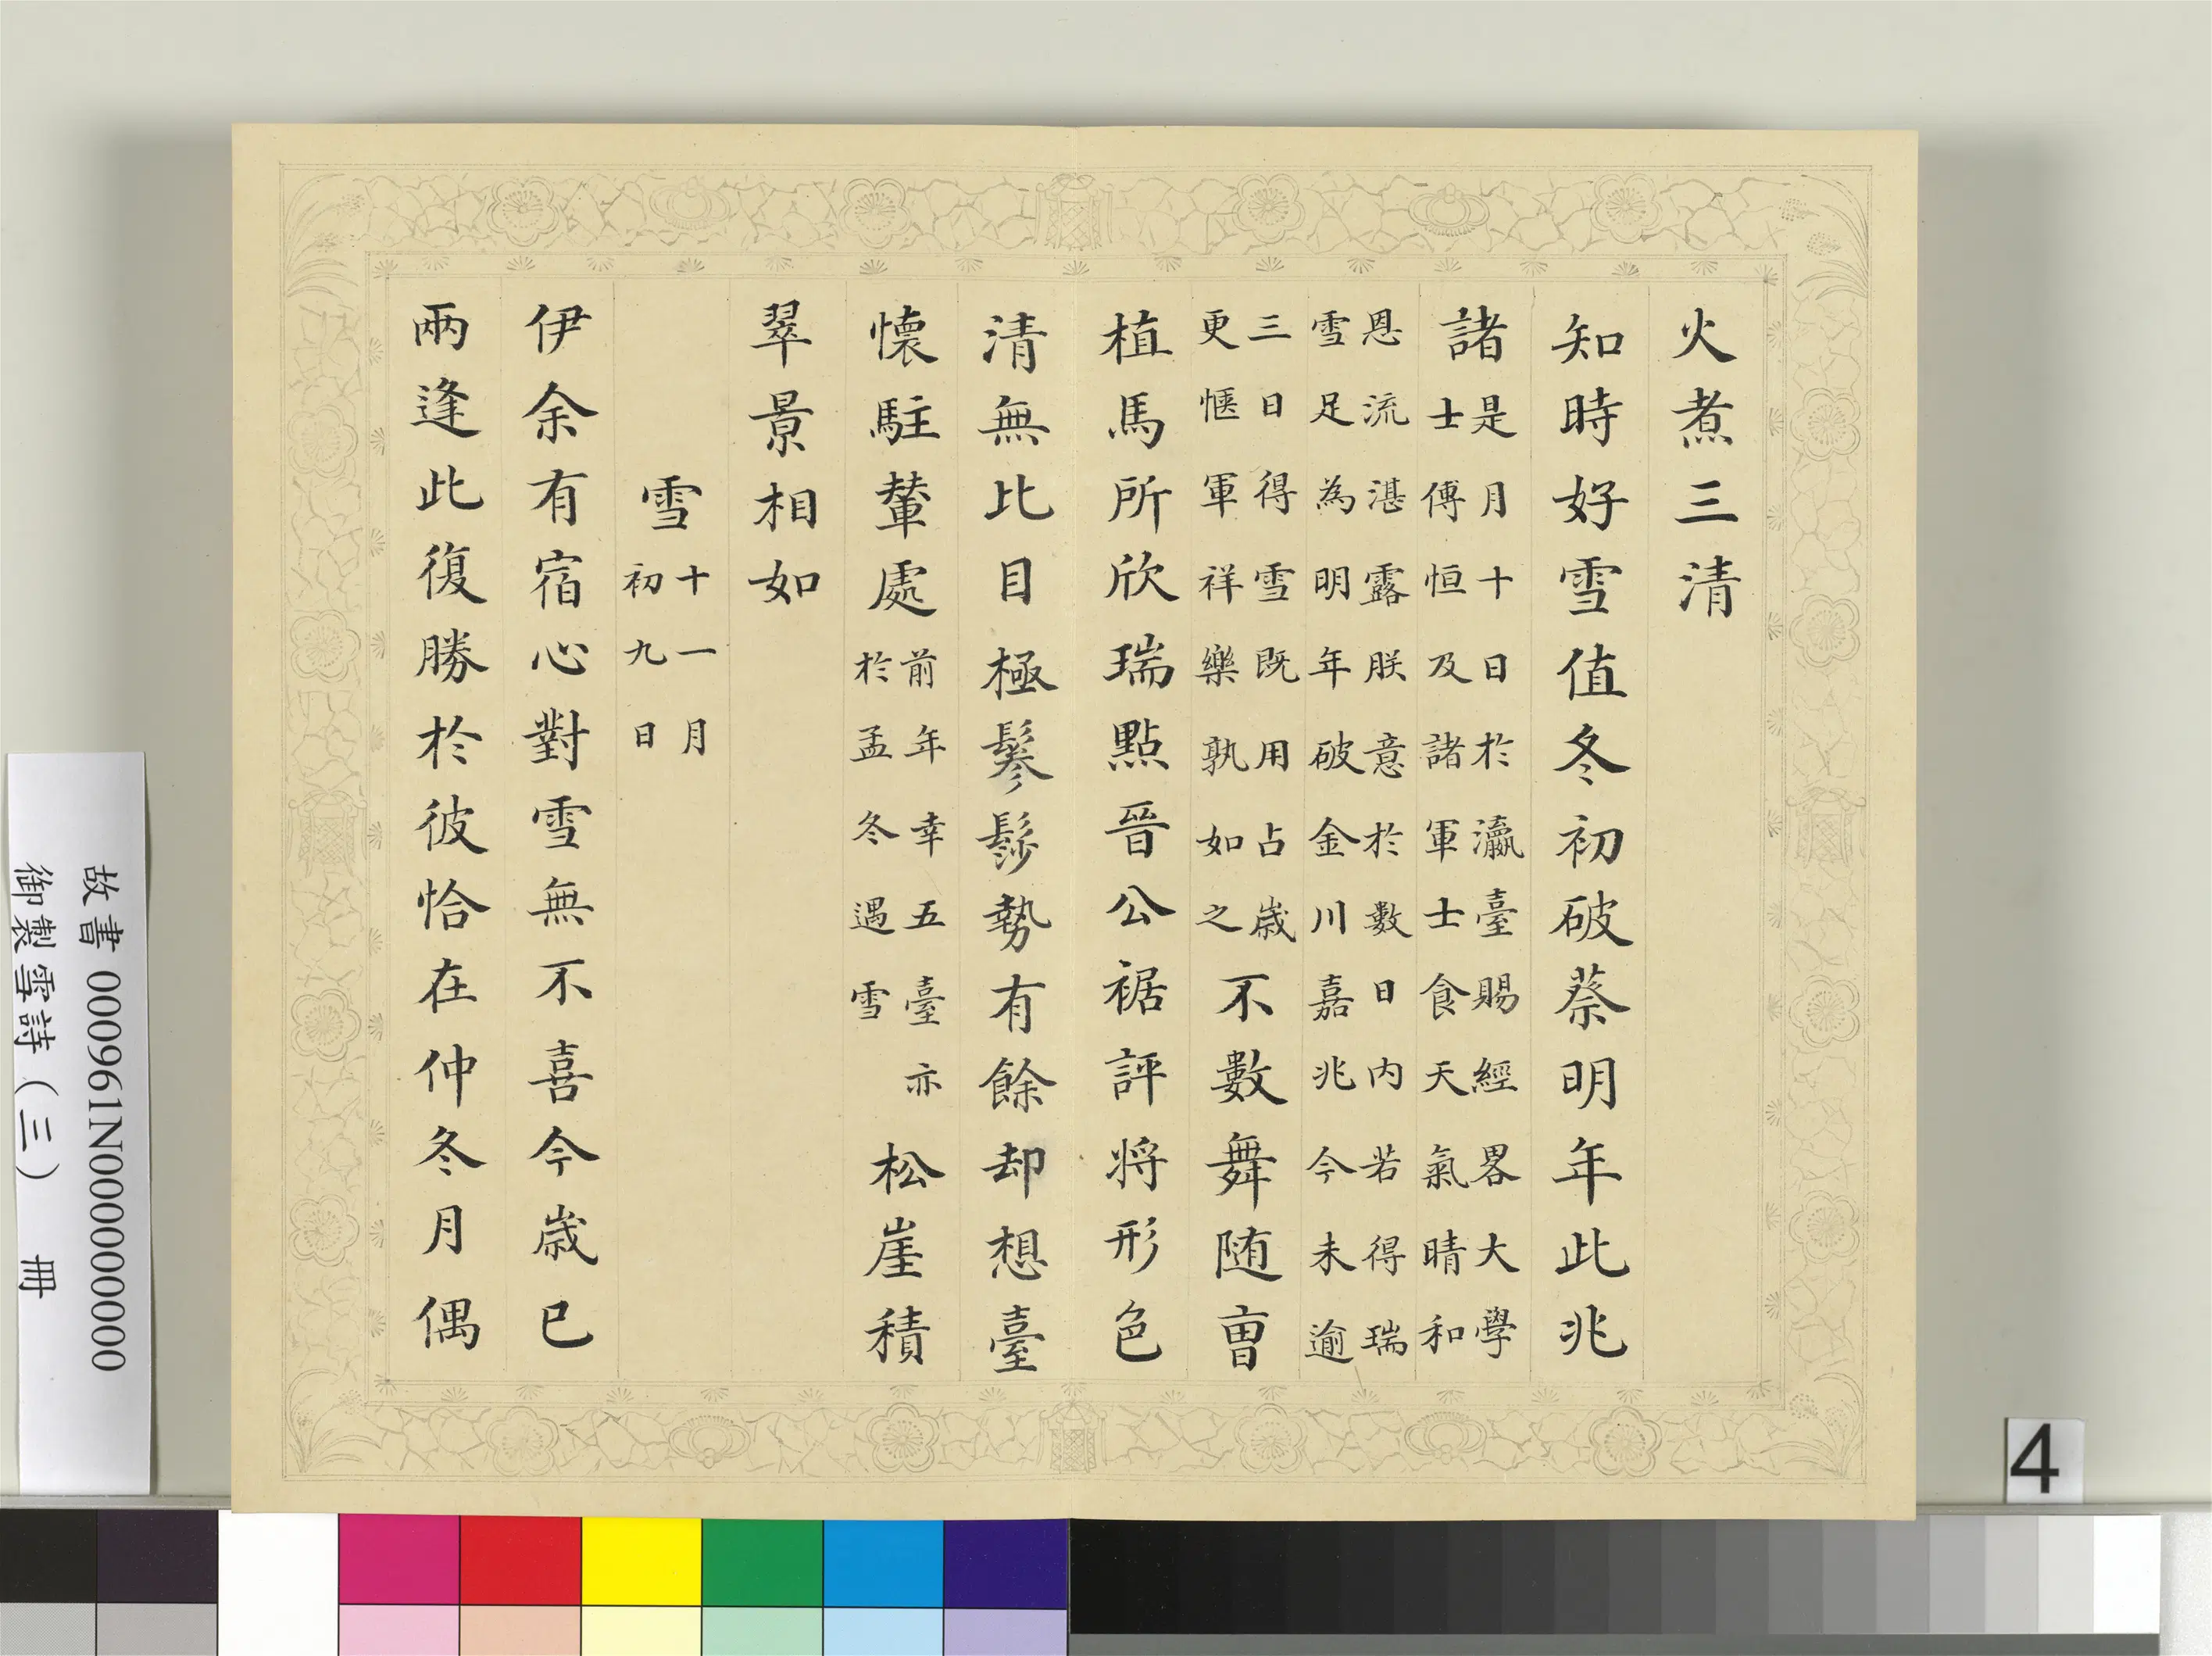 火煮三清
知時好雪值冬初破蔡明年此兆
諸是月十日於瀛臺賜經畧大學
士傅恒及諸軍士食天氣晴和
恩流湛露朕意於數日内若得瑞
雪足為明年破金川嘉兆今未逾
三日得雪既用占歲
更愜軍祥樂孰如之不數舞随曺
植馬所欣瑞點晉公裾評將形色
清無比目極鬖髿勢有餘却想臺
懐駐輦處前年幸五臺亦
於孟冬遇雪松崖積
翠景相如
雪十一月
初九日
伊余有宿心對雪無不喜今歲已
兩逢此復勝於彼恰在仲冬月偶
故書 000961N000000000
御製雪詩（三） 冊
4